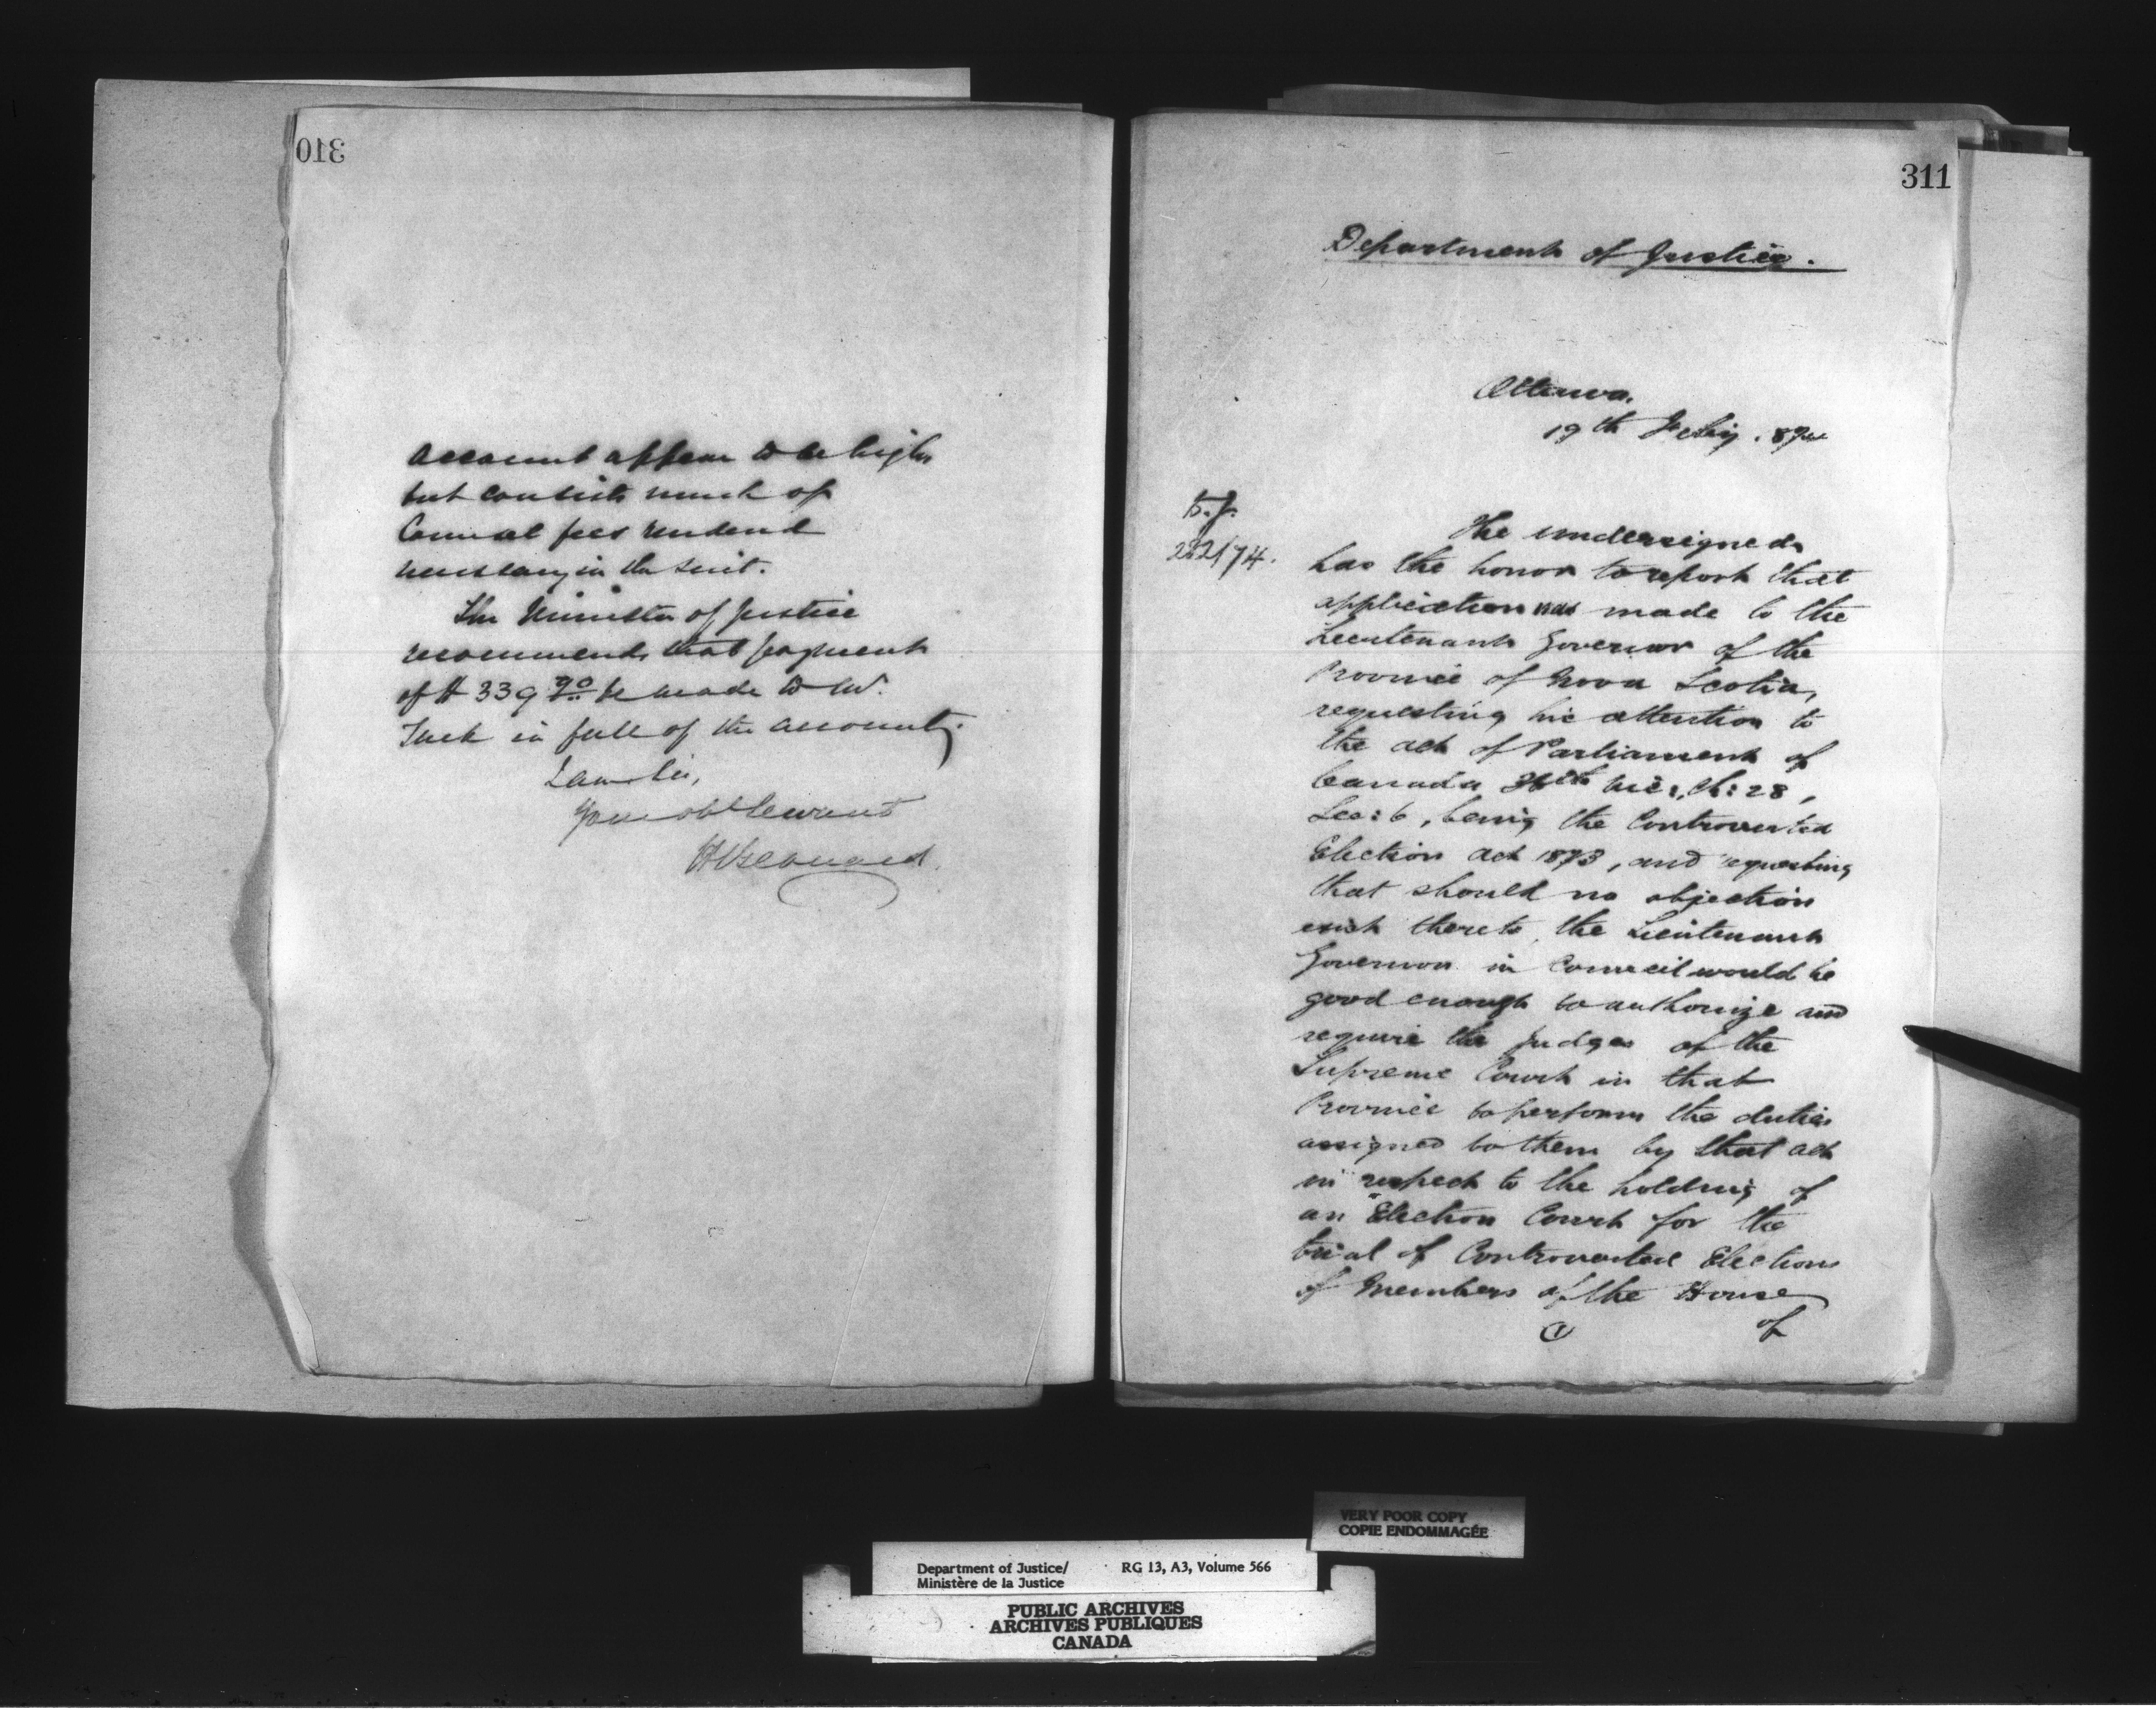 310
account appear to be high
but consists much of
Counsel fees rendered
necessary in the suit.
The Minister of Justice
recommends that payment
of $ 339 90 be made to Mr.
Tuck in full of the account.
I am Sir,
Your obt Servant
H Bernard
311
Department of Justice.
Ottawa.
19th Feby. 1874
222/74.
The undersigned
has the honor to report that
application was made to the
Lieutenant Governor of the
Province of Nova Scotia,
requesting his attention to
the act of Parliament of
Canada 36th Vic:, Ch: 28,
Sec: 6, being the Controverted
Election Act 1873, and requesting
that should no objection
exist thereto, the Lieutenant
Governor in Council would be
good enough to authorize and
require the Judges of the
Supreme Court in that
Province to perform the duties
assigned to them by that Act
in respect to the holding of
an Election Court for the
trial of Controverted Elections
of Members of the House
1 of
VERY POOR COPY
COPIE ENDOMMAGÉE
Department of Justice/ RG 13, A3, Volume 566
Ministère de la Justice
PUBLIC ARCHIVES
ARCHIVES PUBLIQUES
CANADA